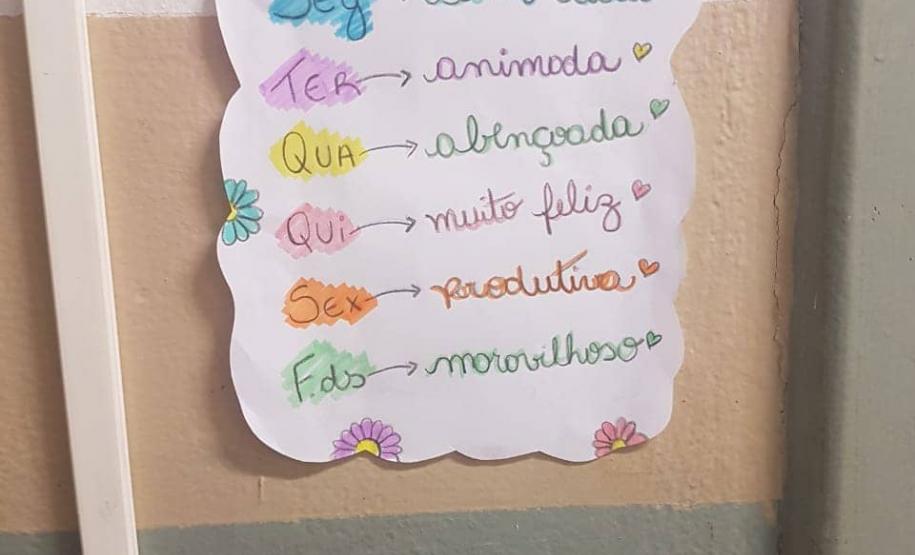 Seg
TER → animada
QUA → abençoada
QUi → muito feliz
Sex → produtiva
Fds → maravilhoso